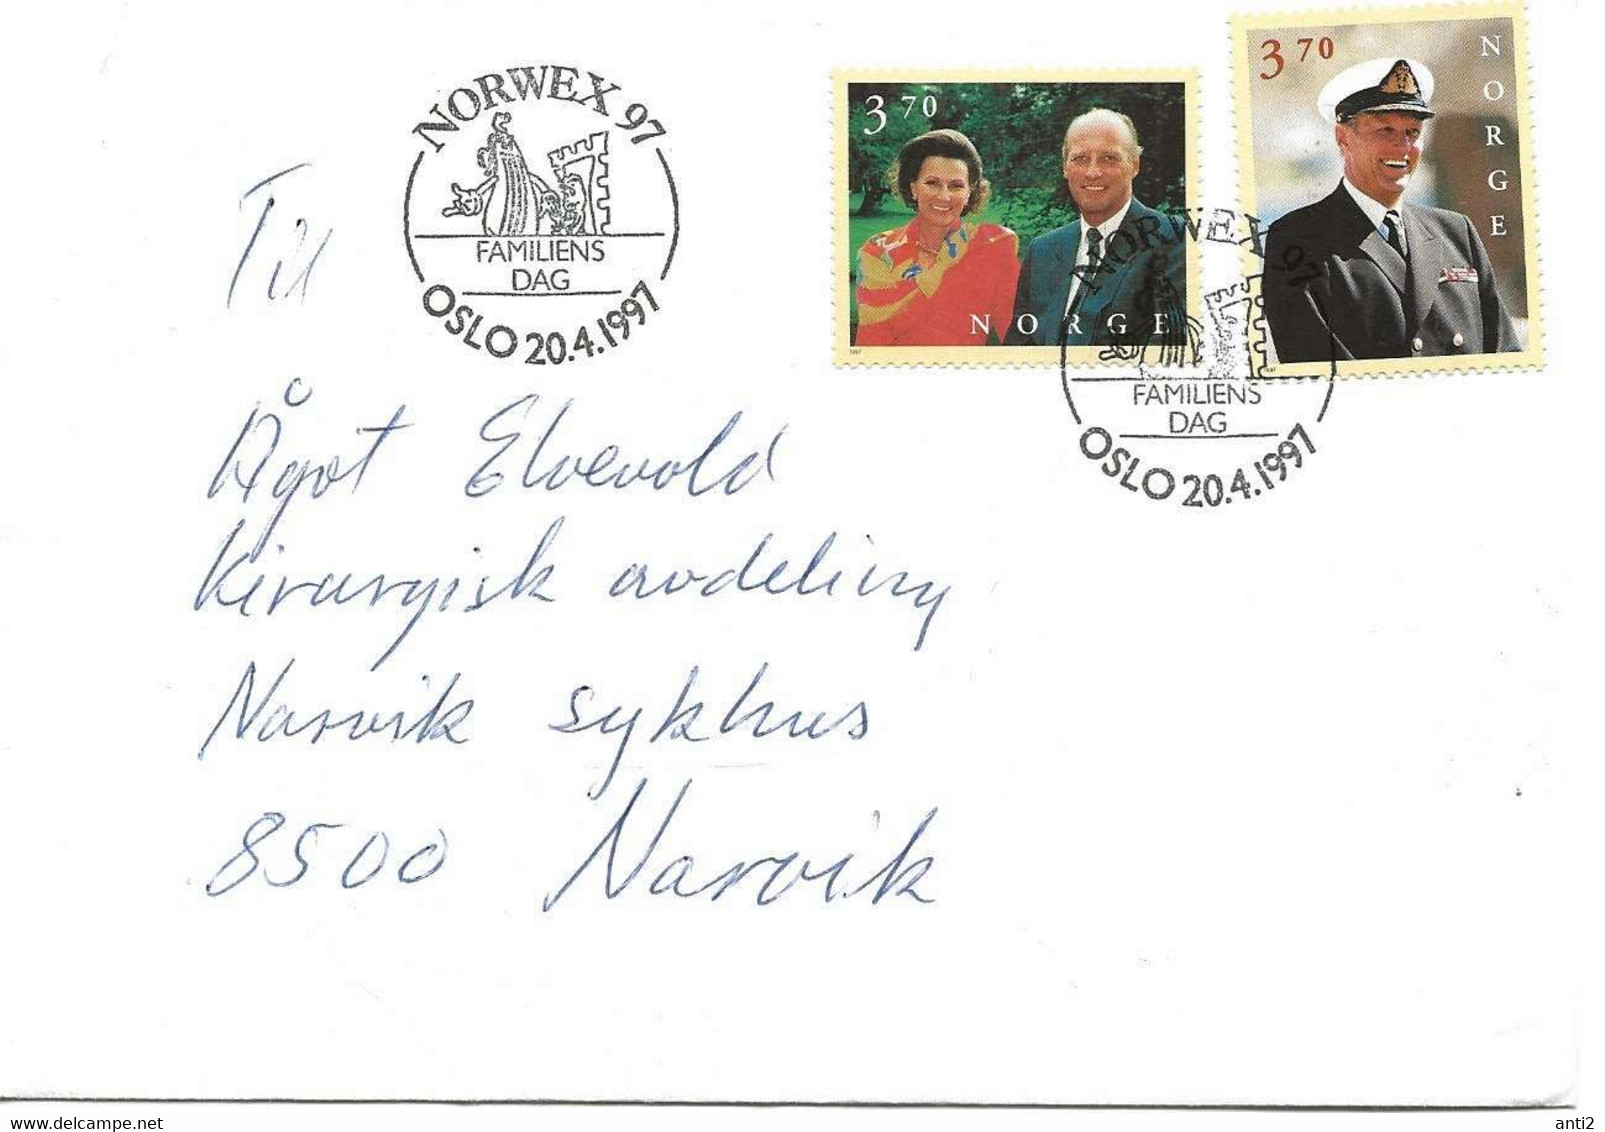 NORWEX 97
FAMILIENS
DAG
OSLO 20.4.1997
3 70
NORGE
1997
3 70
NORGE
NORWEX 97
FAMILIENS
DAG
OSLO 20.4.1997
Til
Ågot Elvevold
Kirurgisk avdeling
Narvik sykhus
8500 Narvik
www.delcampe.net
anti2